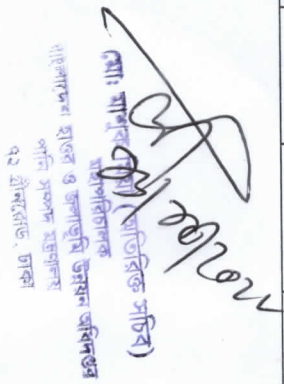 মোঃ (অতিরিক্ত সচিব)
মহাপরিচালক
বাংলাদেশ হাওর ও জলাভূমি উন্নয়ন অধিদপ্তর
পানি সম্পদ মন্ত্রণালয়
৭২ গ্রীনরোড, ঢাকা